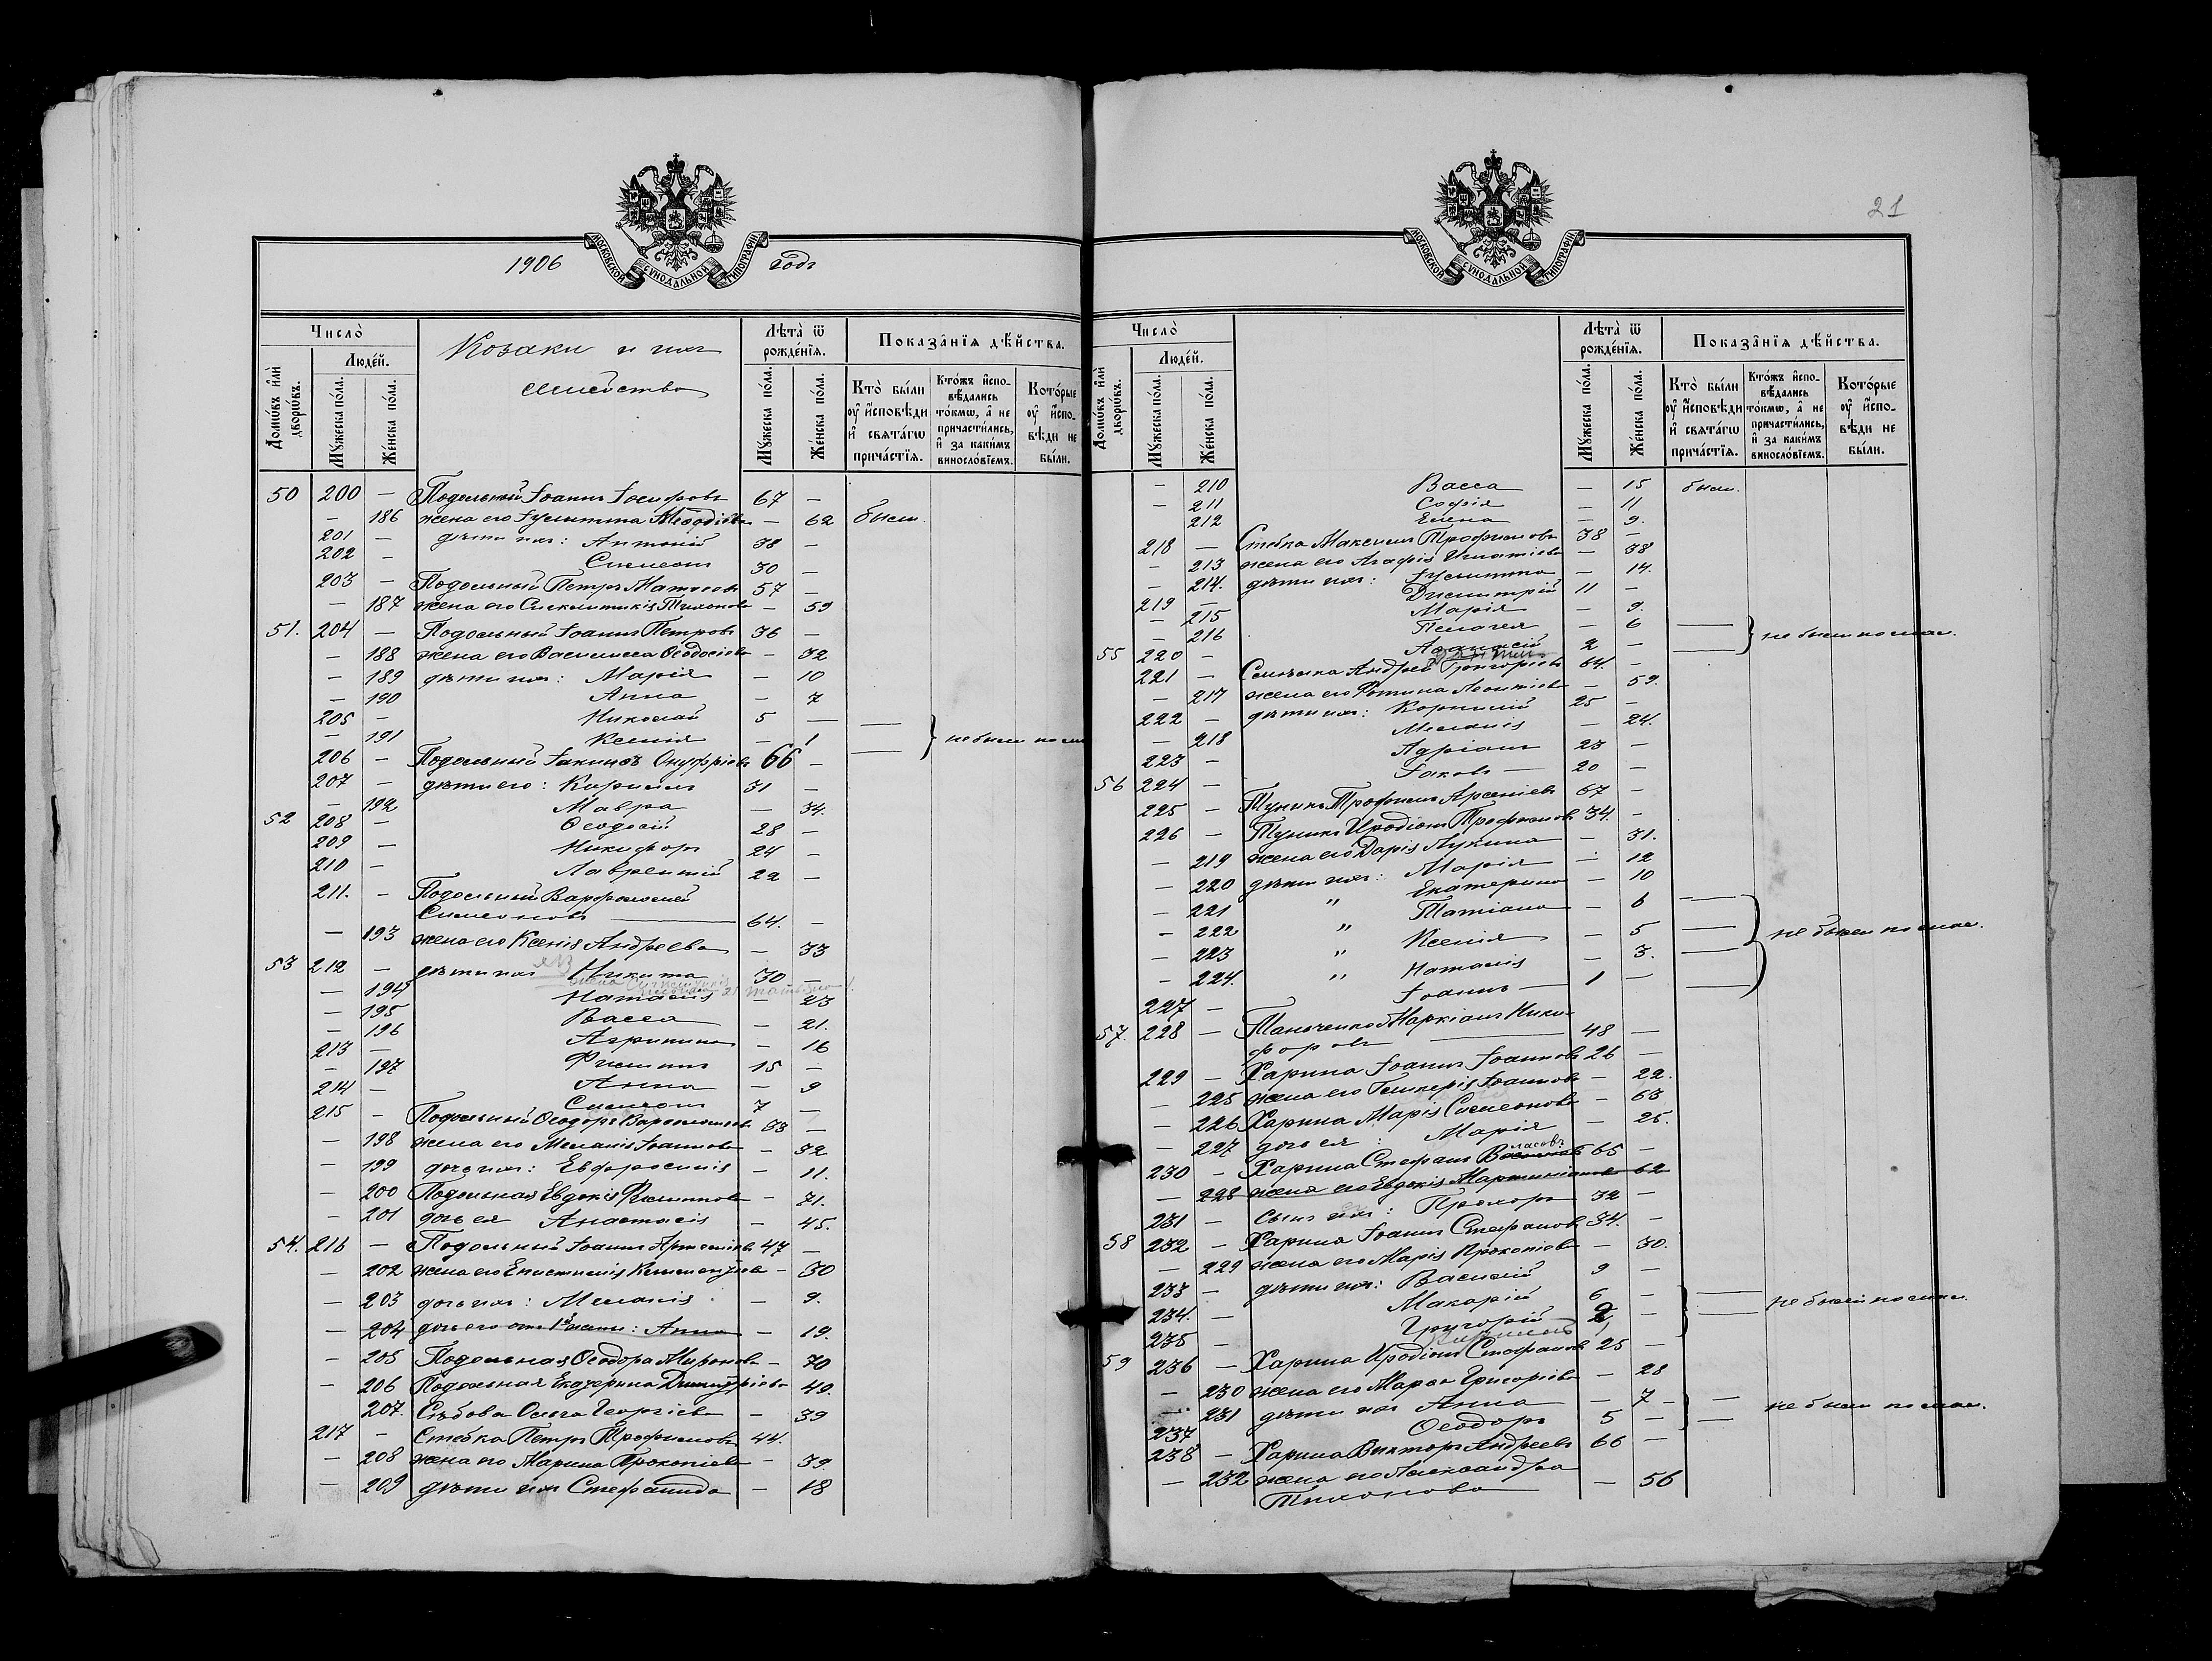 21
МОСКОВСКОЙ СѴНОДАЛЬНОЙ ТИПОГРАФІИ
1906 годъ
Число̀
Люде́й.
Домѡ́въ и҆лѝ дворѡ́въ.
Мꙋ́жеска по́ла.
Же́нска по́ла.
Козаки и ихъ
семейства
Лѣ́та ѿ рожде́нїѧ.
Мꙋ́жеска по́ла.
Же́нска по́ла.
Показа̑нїѧ дѣ́йства.
Кто̀ бы́ли оу҆ и҆сповѣ́ди и҆ свѧта́гѡ прича́стїѧ.
Кто́жъ и҆сповѣ́дались то́кмѡ, а҆ не причасти́лись, и҆ за каки́мъ винословїемъ.
Кото́рые оу҆ и҆сповѣ́ди не бы́ли.
50 200 — Подольный Іоаннъ Іосифовъ 67 —
— 186 жена его Іулитта — 62 были.
201 — дѣти ихъ: Антоній 38 —
202 — Симеонъ 30 —
203 — Подольный Петръ 57 —
— 187 жена его — 59
51. 204 — Подольный Іоаннъ Петровъ 36 —
— 188 жена его Василисса Ѳеодосіева — 32
— 189 дѣти ихъ: Марія — 10
— 190 Анна — 7
205 — Николай 5 —
— 191 Ксенія — 1 не были по мал
206 — Подольный Іакинѳъ Онуфріевъ 66 —
207 — дѣти его: Кириллъ 31 —
— 192 Мавра — 34.
52 208 — Ѳеодосій 28 —
209 — Никифоръ 24 —
210 — Лаврентій 22 —
211. — Подольный Варѳоломей
Симеоновъ 64. —
— 193 жена его Ксенія Андреева — 33
53 212 — дѣти ихъ Никита 30 —
— 194 Наталія — 23
— 195 Васса — 21.
— 196 Агрипина — 16
213 — Филиппъ 15 —
— 197 Анна — 9
214 — Симеонъ 7 —
215 — Подольный Ѳеодоръ 33 —
— 198 жена его Меланія Іоаннова — 32
— 199 дочь ихъ: Евфросинія — 11.
— 200 Подольная Евдокія Филиппова — 71.
— 201 дочь ея Анастасія — 45.
54. 216 — Подольный Іоаннъ 47 —
— 202 жена его Епистимія — 30
— 203 дочь ихъ: Меланія — 9.
— 204 дочь его отъ 1й жены: Анна — 19.
— 205 Подольная Ѳеодора Миронова — 70
— 206 Подольная Екатерина Димитріева 40.
207. Ольга Георгіева — 39
217 — Стебка Петръ Трофимовъ 44.
— 208 жена его Марина Прокопіева — 39.
— 209 дѣти ихъ Стефанида — 18
МОСКОВСКОЙ СѴНОДАЛЬНОЙ ТИПОГРАФІИ
Число̀
Люде́й.
Домѡ́въ и҆лѝ дворѡ́въ.
Мꙋ́жеска по́ла.
Же́нска по́ла.
Лѣ́та ѿ рожде́нїѧ.
Мꙋ́жеска по́ла.
Же́нска по́ла.
Показа̑нїѧ дѣ́йства.
Кто̀ бы́ли оу҆ и҆сповѣ́ди и҆ свѧта́гѡ прича́стїѧ.
Кто́жъ и҆сповѣ́дались то́кмѡ, а҆ не причасти́лись, и҆ за каки́мъ винословїемъ.
Кото́рые оу҆ и҆сповѣ́ди не бы́ли.
— 210 Васса — 15 были.
— 211 Софія — 11
212 Елена — 9.
218 — Стебка Максимъ Трофимовъ 38 —
— 213 жена его Агафія Игнатіева — 38
— 214. дѣти ихъ: Іулитта — 14.
219 — Димитрій 11 —
— 215 Марія — 9.
— 216 Пелагея — 6 не были по мал.
55 220 — 2 —
221 — Андрей Григорьевъ 64. —
— 217 жена его Фотина Леонтіева — 59.
222 — дѣти ихъ: Корнилій 25 —
— 218 Меланія — 24.
223 — Адріанъ 23 —
56 224 — Іаковъ 20 —
225 — Тупикъ Трофимъ Арсеніевъ 67 —
226 — Тупикъ Иродіонъ Трофимовъ 34. —
— 219 жена его Дарія Лукина — 31.
— 220 дѣти ихъ: Марія — 12
— 221 " Екатерина — 10
— 222 " Татіана — 6
— 223 " Ксенія — 5 не были по мал.
— 224. " Наталія — 3.
227 — Іоаннъ 1 —
57. 228 — Маркіанъ Ники-
форовъ 48 —
229 — Харина Іоаннъ Іоанновъ 26 —
— 225 жена его Гликерія Іоаннова — 22.
— 226 Харина Марія Симеонова — 63
— 227 дочь ея: Марія — 25.
230 — Харина Стефанъ Власовъ 65 —
— 228 жена его Евдокія Мартиніанова 62
231 — Сынъ ихъ: Прохоръ 32 —
58 232 — Харина Іоаннъ Стефановъ 34. —
— 229 жена его Марія Прокопіева — 30.
233 — дѣти ихъ: Василій 9 —
234. — Макарій 6 — не были по мал.
235 — Григорій 2 —
59 236 — Харина Иродіонъ Стефановъ 25 —
— 230 жена его Марѳа Григоріева — 28
— 231 дѣти ихъ Анна — 7 не были по мал.
237 Ѳеодоръ 5 —
238 — Харина Викторъ Андреевъ 66 —
— 232 жена его Александра
Тихонова — 56